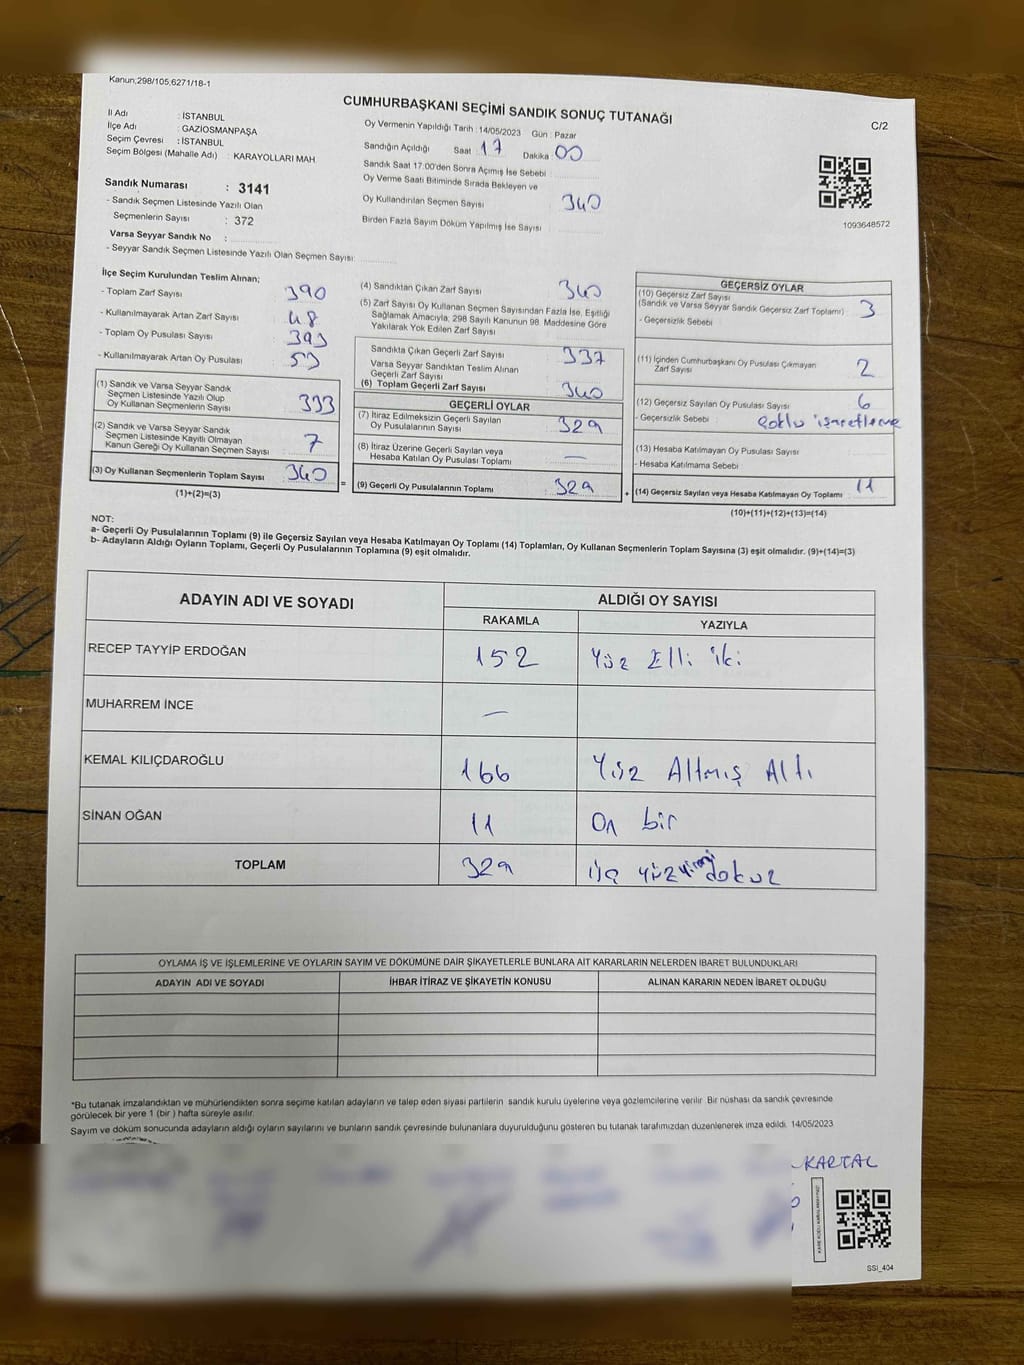 Kanun;298/105,6271/18-1
CUMHURBAŞKANI SEÇİMİ SANDIK SONUÇ TUTANAĞI
C/2
İl Adı : İSTANBUL
İlçe Adı : GAZİOSMANPAŞA
Seçim Çevresi : İSTANBUL
Seçim Bölgesi (Mahalle Adı) : KARAYOLLARI MAH.
Sandık Numarası : 3141
- Sandık Seçmen Listesinde Yazılı Olan
Seçmenlerin Sayısı : 372
Varsa Seyyar Sandık No :
- Seyyar Sandık Seçmen Listesinde Yazılı Olan Seçmen Sayısı:
Oy Vermenin Yapıldığı Tarih : 14/05/2023 Gün : Pazar
Sandığın Açıldığı Saat : 17 Dakika : 00
Sandık Saat 17:00'den Sonra Açımış İse Sebebi
Oy Verme Saati Bitiminde Sırada Bekleyen ve
Oy Kullandırılan Seçmen Sayısı 340
Birden Fazla Sayım Döküm Yapılmış İse Sayısı
1093648572
İlçe Seçim Kurulundan Teslim Alınan;
- Toplam Zarf Sayısı 390
- Kullanılmayarak Artan Zarf Sayısı 48
- Toplam Oy Pusulası Sayısı 393
- Kullanılmayarak Artan Oy Pusulası 53
(1) Sandık ve Varsa Seyyar Sandık
Seçmen Listesinde Yazılı Olup
Oy Kullanan Seçmenlerin Sayısı 333
(2) Sandık ve Varsa Seyyar Sandık
Seçmen Listesinde Kayıtlı Olmayan
Kanun Gereği Oy Kullanan Seçmen Sayısı 7
(3) Oy Kullanan Seçmenlerin Toplam Sayısı 340
(1)+(2)=(3)
(4) Sandıktan Çıkan Zarf Sayısı 340
(5) Zarf Sayısı Oy Kullanan Seçmen Sayısından Fazla İse, Eşitliği
Sağlamak Amacıyla, 298 Sayılı Kanunun 98. Maddesine Göre
Yakılarak Yok Edilen Zarf Sayısı
Sandıkta Çıkan Geçerli Zarf Sayısı 337
Varsa Seyyar Sandıktan Teslim Alınan
Geçerli Zarf Sayısı
(6) Toplam Geçerli Zarf Sayısı 340
GEÇERLİ OYLAR
(7) İtiraz Edilmeksizin Geçerli Sayılan
Oy Pusulalarının Sayısı 329
(8) İtiraz Üzerine Geçerli Sayılan veya
Hesaba Katılan Oy Pusulası Toplamı —
= (9) Geçerli Oy Pusulalarının Toplamı 329 +
GEÇERSİZ OYLAR
(10) Geçersiz Zarf Sayısı
(Sandık ve Varsa Seyyar Sandık Geçersiz Zarf Toplamı) 3
- Geçersizlik Sebebi
(11) İçinden Cumhurbaşkanı Oy Pusulası Çıkmayan
Zarf Sayısı 2
(12) Geçersiz Sayılan Oy Pusulası Sayısı 6
- Geçersizlik Sebebi Çoklu işaretleme
(13) Hesaba Katılmayan Oy Pusulası Sayısı
- Hesaba Katılmama Sebebi
(14) Geçersiz Sayılan veya Hesaba Katılmayan Oy Toplamı 11
(10)+(11)+(12)+(13)=(14)
NOT:
a- Geçerli Oy Pusulalarının Toplamı (9) ile Geçersiz Sayılan veya Hesaba Katılmayan Oy Toplamı (14) Toplamları, Oy Kullanan Seçmenlerin Toplam Sayısına (3) eşit olmalıdır. (9)+(14)=(3)
b- Adayların Aldığı Oyların Toplamı, Geçerli Oy Pusulalarının Toplamına (9) eşit olmalıdır.
ADAYIN ADI VE SOYADI ALDIĞI OY SAYISI
RAKAMLA YAZIYLA
RECEP TAYYİP ERDOĞAN 152 Yüz Elli iki
MUHARREM İNCE —
KEMAL KILIÇDAROĞLU 166 Yüz Altmış Altı
SİNAN OĞAN 11 On bir
TOPLAM 329 üç yüz yirmi dokuz
OYLAMA İŞ VE İŞLEMLERİNE VE OYLARIN SAYIM VE DÖKÜMÜNE DAİR ŞİKAYETLERLE BUNLARA AİT KARARLARIN NELERDEN İBARET BULUNDUKLARI
ADAYIN ADI VE SOYADI İHBAR İTİRAZ VE ŞİKAYETİN KONUSU ALINAN KARARIN NEDEN İBARET OLDUĞU
*Bu tutanak imzalandıktan ve mühürlendikten sonra seçime katılan adayların ve talep eden siyasi partilerin sandık kurulu üyelerine veya gözlemcilerine verilir. Bir nüshası da sandık çevresinde
görülecek bir yere 1 (bir ) hafta süreyle asılır.
Sayım ve döküm sonucunda adayların aldığı oyların sayılarını ve bunların sandık çevresinde bulunanlara duyurulduğunu gösteren bu tutanak tarafımızdan düzenlenerek imza edildi. 14/05/2023
KARTAL
SSI_404